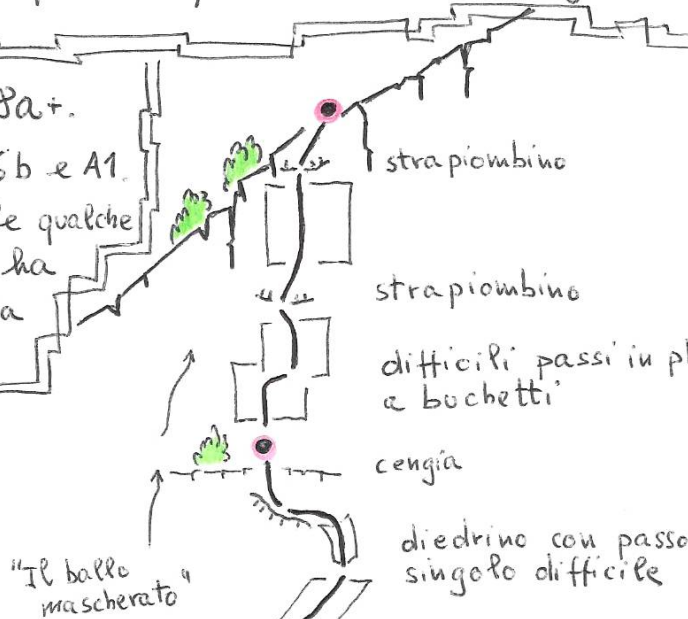 8a+.
6b e A1.
e qualche
ha
a
strapiombino
strapiombino
difficili passi in
a buchetti
cengia
diedrino con passo
singolo difficile
"Il ballo
mascherato"